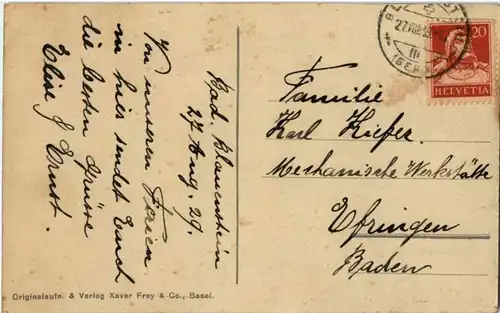 Bad Blauenstein
27 Aug. 29.
Von unseren Ferien
in hier sendet Euch
die besten Grüsse
Elise & Ernst.
Familie
Karl Kiefer
Mechanische Werkstätte
Efringen
Baden
20
HELVETIA
Originalaufn. & Verlag Xaver Frey & Co., Basel.